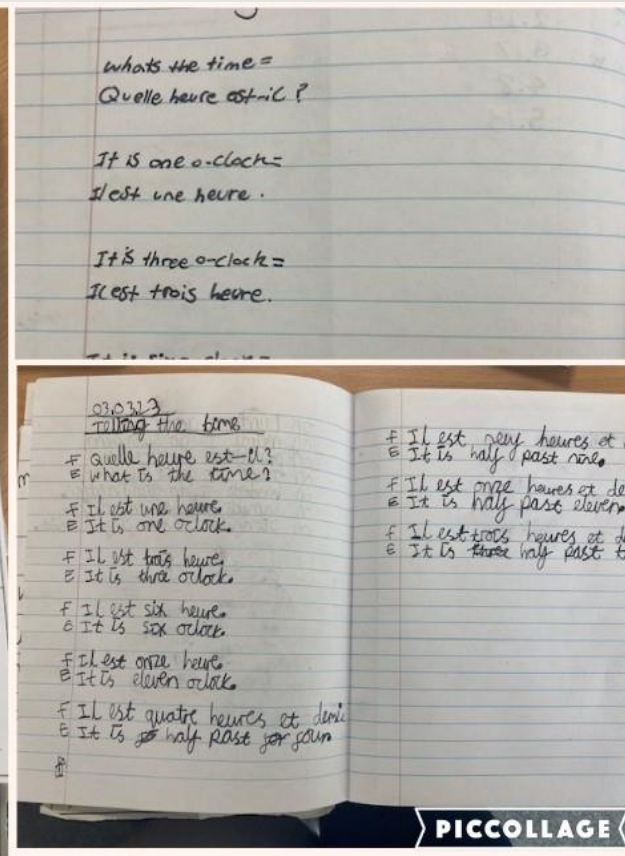 whats the time =
Quelle heure est-il ?
It is one o-clock=
Il est une heure .
It is three o-clock =
Il est trois heure.
03.03.23
Telling the time
F Quelle heure est-il?
E What is the time?
F Il est une heure.
E It is one oclock.
F Il est trois heure.
E It is three oclock.
F Il est six heure.
E It is six oclock.
F Il est onze heure.
E It is eleven oclock.
F Il est quatre heures et demi
E It is half past four
F Il est neuf heures et
E It is half past nine.
F Il est onze heures et de
E It is half past eleven.
F Il est trois heures et d
E It is half past t
PICCOLLAGE